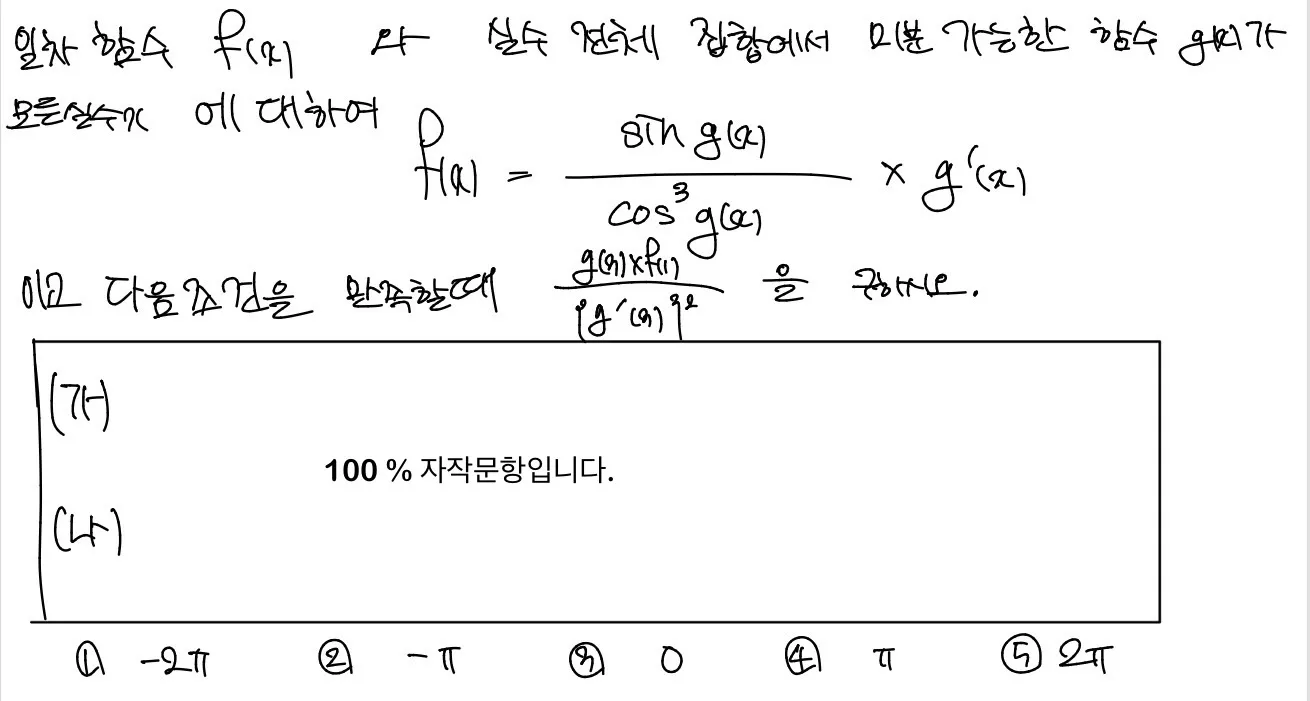 일차 함수 f(x) 와 실수 전체 집합에서 미분 가능한 함수 g(x)가
모든실수x 에 대하여
f(x) = sin g(x) / cos³ g(x) × g′(x)
이고 다음조건을 만족할때 g(3)×f(1) / {g′(3)}² 을 구하시오.
(가)
100 % 자작문항입니다.
(나)
① -2π ② -π ③ 0 ④ π ⑤ 2π